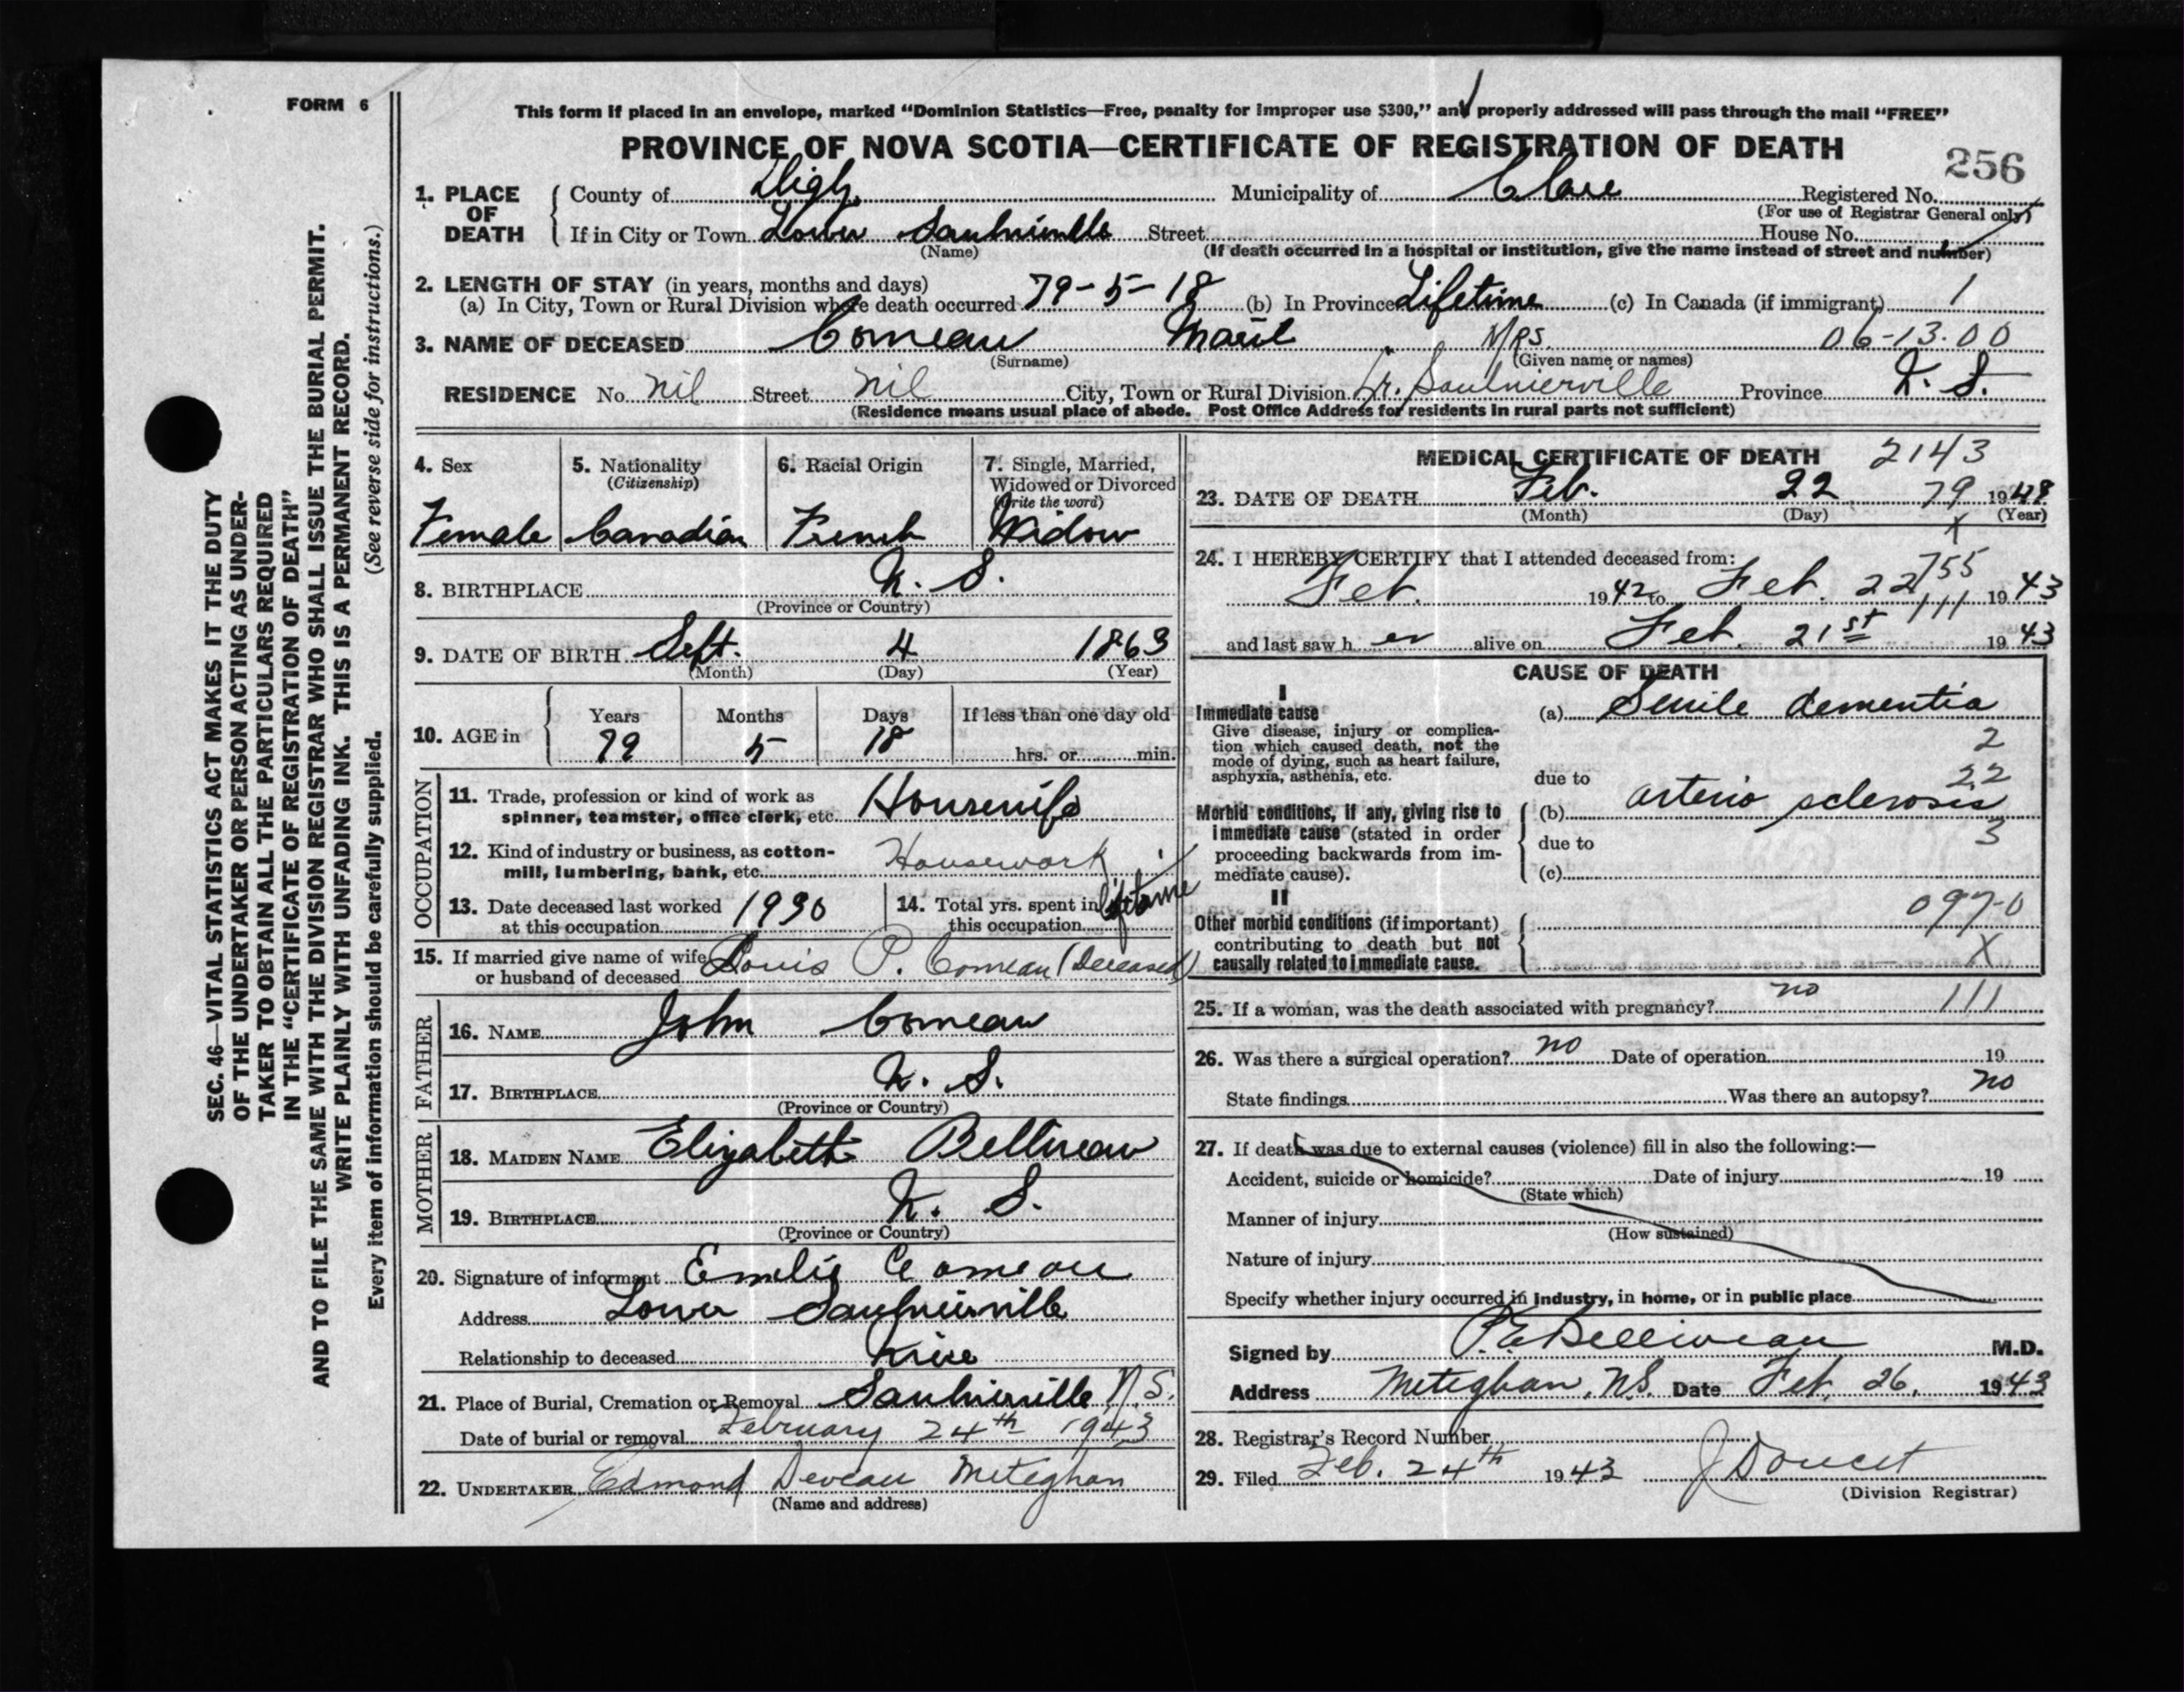 FORM 6
This form if placed in an envelope, marked “Dominion Statistics—Free, penalty for improper use $300,” and properly addressed will pass through the mail “FREE”
PROVINCE OF NOVA SCOTIA—CERTIFICATE OF REGISTRATION OF DEATH
256
1. PLACE OF DEATH County of Digby Municipality of Clare Registered No.
(For use of Registrar General only)
If in City or Town Lower Saulnierville Street House No.
(Name) (If death occurred in a hospital or institution, give the name instead of street and number)
2. LENGTH OF STAY (in years, months and days)
(a) In City, Town or Rural Division where death occurred 79-5-18 (b) In Province Lifetime (c) In Canada (if immigrant) 1
3. NAME OF DECEASED Comeau Mrs 06-13.00
(Surname) (Given name or names)
RESIDENCE No. nil Street nil City, Town or Rural Division Lr. Saulnierville Province N. S.
(Residence means usual place of abode. Post Office Address for residents in rural parts not sufficient)
4. Sex 5. Nationality (Citizenship) 6. Racial Origin 7. Single, Married, Widowed or Divorced (Write the word)
Female Canadian French Widow
8. BIRTHPLACE N. S.
(Province or Country)
9. DATE OF BIRTH Sept. 4 1863
(Month) (Day) (Year)
10. AGE in Years Months Days If less than one day old
79 5 18 hrs. or min.
OCCUPATION
11. Trade, profession or kind of work as spinner, teamster, office clerk, etc. Housewife
12. Kind of industry or business, as cotton-mill, lumbering, bank, etc. Housework
13. Date deceased last worked at this occupation 1930 14. Total yrs. spent in this occupation lifetime
15. If married give name of wife or husband of deceased Louis P. Comeau (Deceased)
FATHER
16. NAME John Comeau
17. BIRTHPLACE N. S.
(Province or Country)
MOTHER
18. MAIDEN NAME Elizabeth Belliveau
19. BIRTHPLACE N. S.
(Province or Country)
20. Signature of informant Emilie Comeau
Address Lower Saulnierville
Relationship to deceased
21. Place of Burial, Cremation or Removal Saulnierville N.S.
Date of burial or removal February 24th 1943
22. UNDERTAKER Edmond Deveau Meteghan
(Name and address)
MEDICAL CERTIFICATE OF DEATH 2143
23. DATE OF DEATH Feb. 22 79 19
(Month) (Day) (Year)
X
24. I HEREBY CERTIFY that I attended deceased from:
755
Feb. 1942 to Feb. 22 1943
111
and last saw her alive on Feb. 21st 1943
CAUSE OF DEATH
I
Immediate cause (a) Senile dementia
Give disease, injury or complication which caused death, not the mode of dying, such as heart failure, asphyxia, asthenia, etc.
2
22
due to
Morbid conditions, if any, giving rise to immediate cause (stated in order proceeding backwards from immediate cause). (b) arterio sclerosis
3
due to
(c)
II
Other morbid conditions (if important) contributing to death but not causally related to immediate cause.
097-0
X
25. If a woman, was the death associated with pregnancy? no 111
26. Was there a surgical operation? no Date of operation 19
State findings Was there an autopsy? no
27. If death was due to external causes (violence) fill in also the following:—
Accident, suicide or homicide? Date of injury 19
(State which)
Manner of injury
(How sustained)
Nature of injury
Specify whether injury occurred in industry, in home, or in public place
Signed by P.E. Belliveau M.D.
Address Meteghan, N.S. Date Feb. 26, 1943
28. Registrar's Record Number
29. Filed Feb. 24th 1943 J Doucet
(Division Registrar)
SEC. 46—VITAL STATISTICS ACT MAKES IT THE DUTY
OF THE UNDERTAKER OR PERSON ACTING AS UNDER-
TAKER TO OBTAIN ALL THE PARTICULARS REQUIRED
IN THE “CERTIFICATE OF REGISTRATION OF DEATH”
AND TO FILE THE SAME WITH THE DIVISION REGISTRAR WHO SHALL ISSUE THE BURIAL PERMIT.
WRITE PLAINLY WITH UNFADING INK. THIS IS A PERMANENT RECORD.
Every item of information should be carefully supplied. (See reverse side for instructions.)